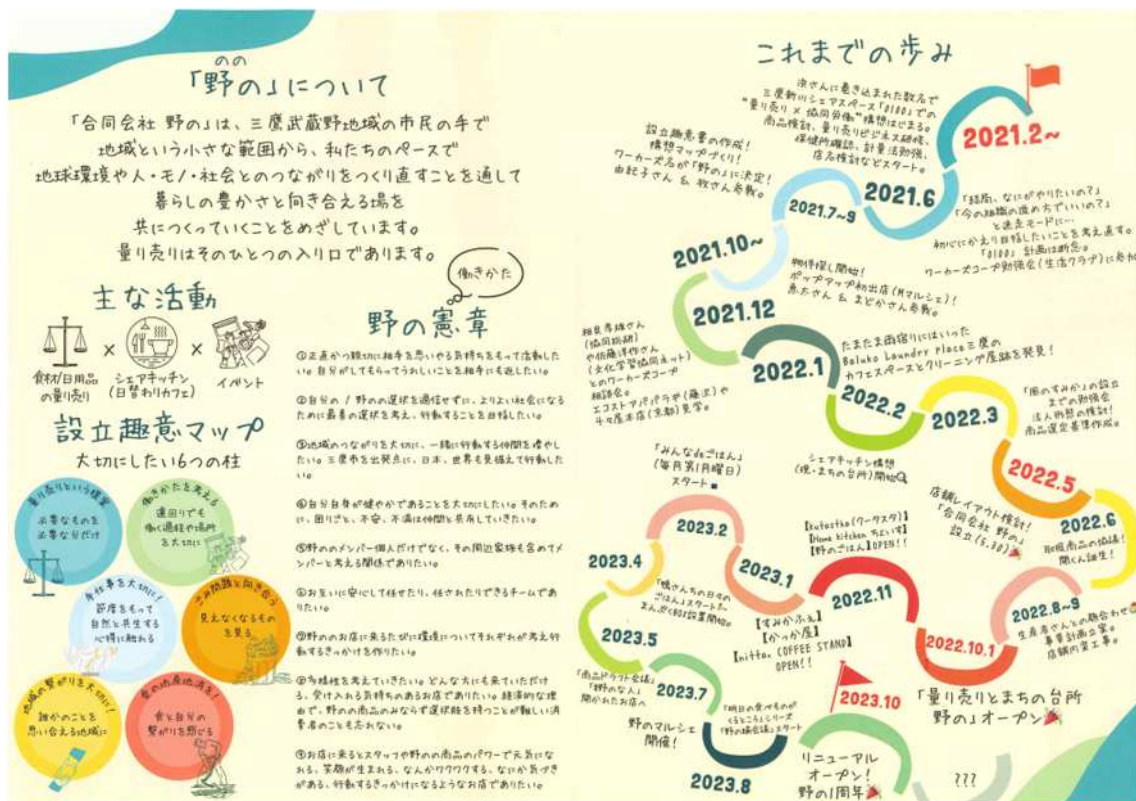 のの
「野の」について
「合同会社 野の」は、三鷹武蔵野地域の市民の手で
地域という小さな範囲から、私たちのペースで
地球環境や人・モノ・社会とのつながりをつくり直すことを通して
暮らしの豊かさと向き合える場を
共につくっていくことをめざしています。
量り売りはそのひとつの入り口であります。
主な活動
食材/日用品
の量り売り
×
シェアキッチン
(日替わりカフェ)
×
イベント
設立趣意マップ
大切にしたい6つの柱
量り売りという提案
必要なものを
必要な分だけ
働きかたを考える
遠回りでも
働く過程や場所
を大切に
手仕事を大切に!
節度をもって
自然と共生する
心得に触れる
ごみ問題と向き合う
見えなくなるもの
を見る
地域の繋がりを大切に!
誰かのことを
思い合える地域に
食の地産地消を!
食と自分の
繋がりを感じる
働きかた
野の憲章
①正直かつ親切に相手を思いやる気持ちをもって活動した
い。自分がしてもらってうれしいことを相手にも返したい。
②自分の / 野のの選択を過信せずに、よりよい社会になる
ために最善の選択を考え、行動することを目指したい。
③地域のつながりを大切に、一緒に行動する仲間を増やし
たい。三鷹市を出発点に、日本、世界も見据えて行動した
い。
④自分自身が健やかであることを大切にしたい。そのため
に、困りごと、不安、不満は仲間と共有していきたい。
⑤野ののメンバー個人だけでなく、その周辺家族も含めてメ
ンバーと考える関係でありたい。
⑥お互いに安心して任せたり、任されたりできるチームであ
りたい。
⑦野ののお店に来るたびに環境についてそれぞれが考え行
動するきっかけを作りたい。
⑧多様性を考えていきたい。どんな方にも来ていただけ
る、受け入れる気持ちのあるお店でありたい。経済的な理
由で、野のの商品のみならず選択肢を持つことが難しい消
費者のことも忘れない。
⑨お店に来るとスタッフや野のの商品のパワーで元気にな
れる、笑顔が生まれる、なんかワクワクする、なにか気づき
がある、行動するきっかけになるようなお店でありたい。
これまでの歩み
2021.2~
三鷹新川シェアスペース「0100」での
"量り売り × 協同労働"構想はじまる。
商品検討、量り売りビジネス研修、
保健所確認、計量法勉強、
店名検討などスタート。
2021.6
「結局、なにがやりたいの?」
「今の組織の進め方でいいの?」
と迷走モードに…
初心にかえり目指したいことを考え直す。
「0100」計画は断念。
ワーカーズコープ勉強会(生活クラブ)に参加
2021.7~9
設立趣意書の作成!
構想マップづくり!
ワーカーズ名が「野の」に決定!
由紀子さん & 牧さん参戦。
2021.10~
物件探し開始!
ポップアップ初出店(Mマルシェ)!
恵太さん & まどかさん参戦。
2021.12
相良孝雄さん
(協同総研)
や佐藤洋作さん
(文化学習協同ネット)
とのワーカーズコープ
相談会。
エコストアパパラギ(藤沢)や
斗々屋本店(京都)見学。
2022.1
たまたま雨宿りにはいった
Baluko Laundry Place三鷹の
カフェスペースとクリーニング屋跡を発見!
2022.2
シェアキッチン構想
(現・まちの台所)開始
2022.3
までの勉強会
法人形態の検討!
商品選定基準作成。
2022.5
店舗レイアウト検討!
「合同会社 野の」
設立(5.30)
2022.6
取扱商品の協議!
開くん誕生!
2022.8~9
生産者さんとの顔合わせ
事業計画立案。
店舗内装工事。
2022.10.1
「量り売りとまちの台所
野の」オープン
2022.11
【kutastha(クータスタ)】
【Home kitchen ちよいず】
【野のごはん】OPEN!!
2023.1
【すみかふぇ】
【かっか屋】
【nittan COFFEE STAND】
OPEN!!
2023.2
「みんなdeごはん」
(毎月第1月曜日)
スタート
2023.4
ごはん」スタート
2023.5
「商品ドラフト会議」
「野のな人」
開かれたお店へ
2023.7
野のマルシェ
開催!
2023.8
「明日の食べものが
くるところ」シリーズ
「野の縁会議」スタート
2023.10
リニューアル
オープン!
野の1周年
???